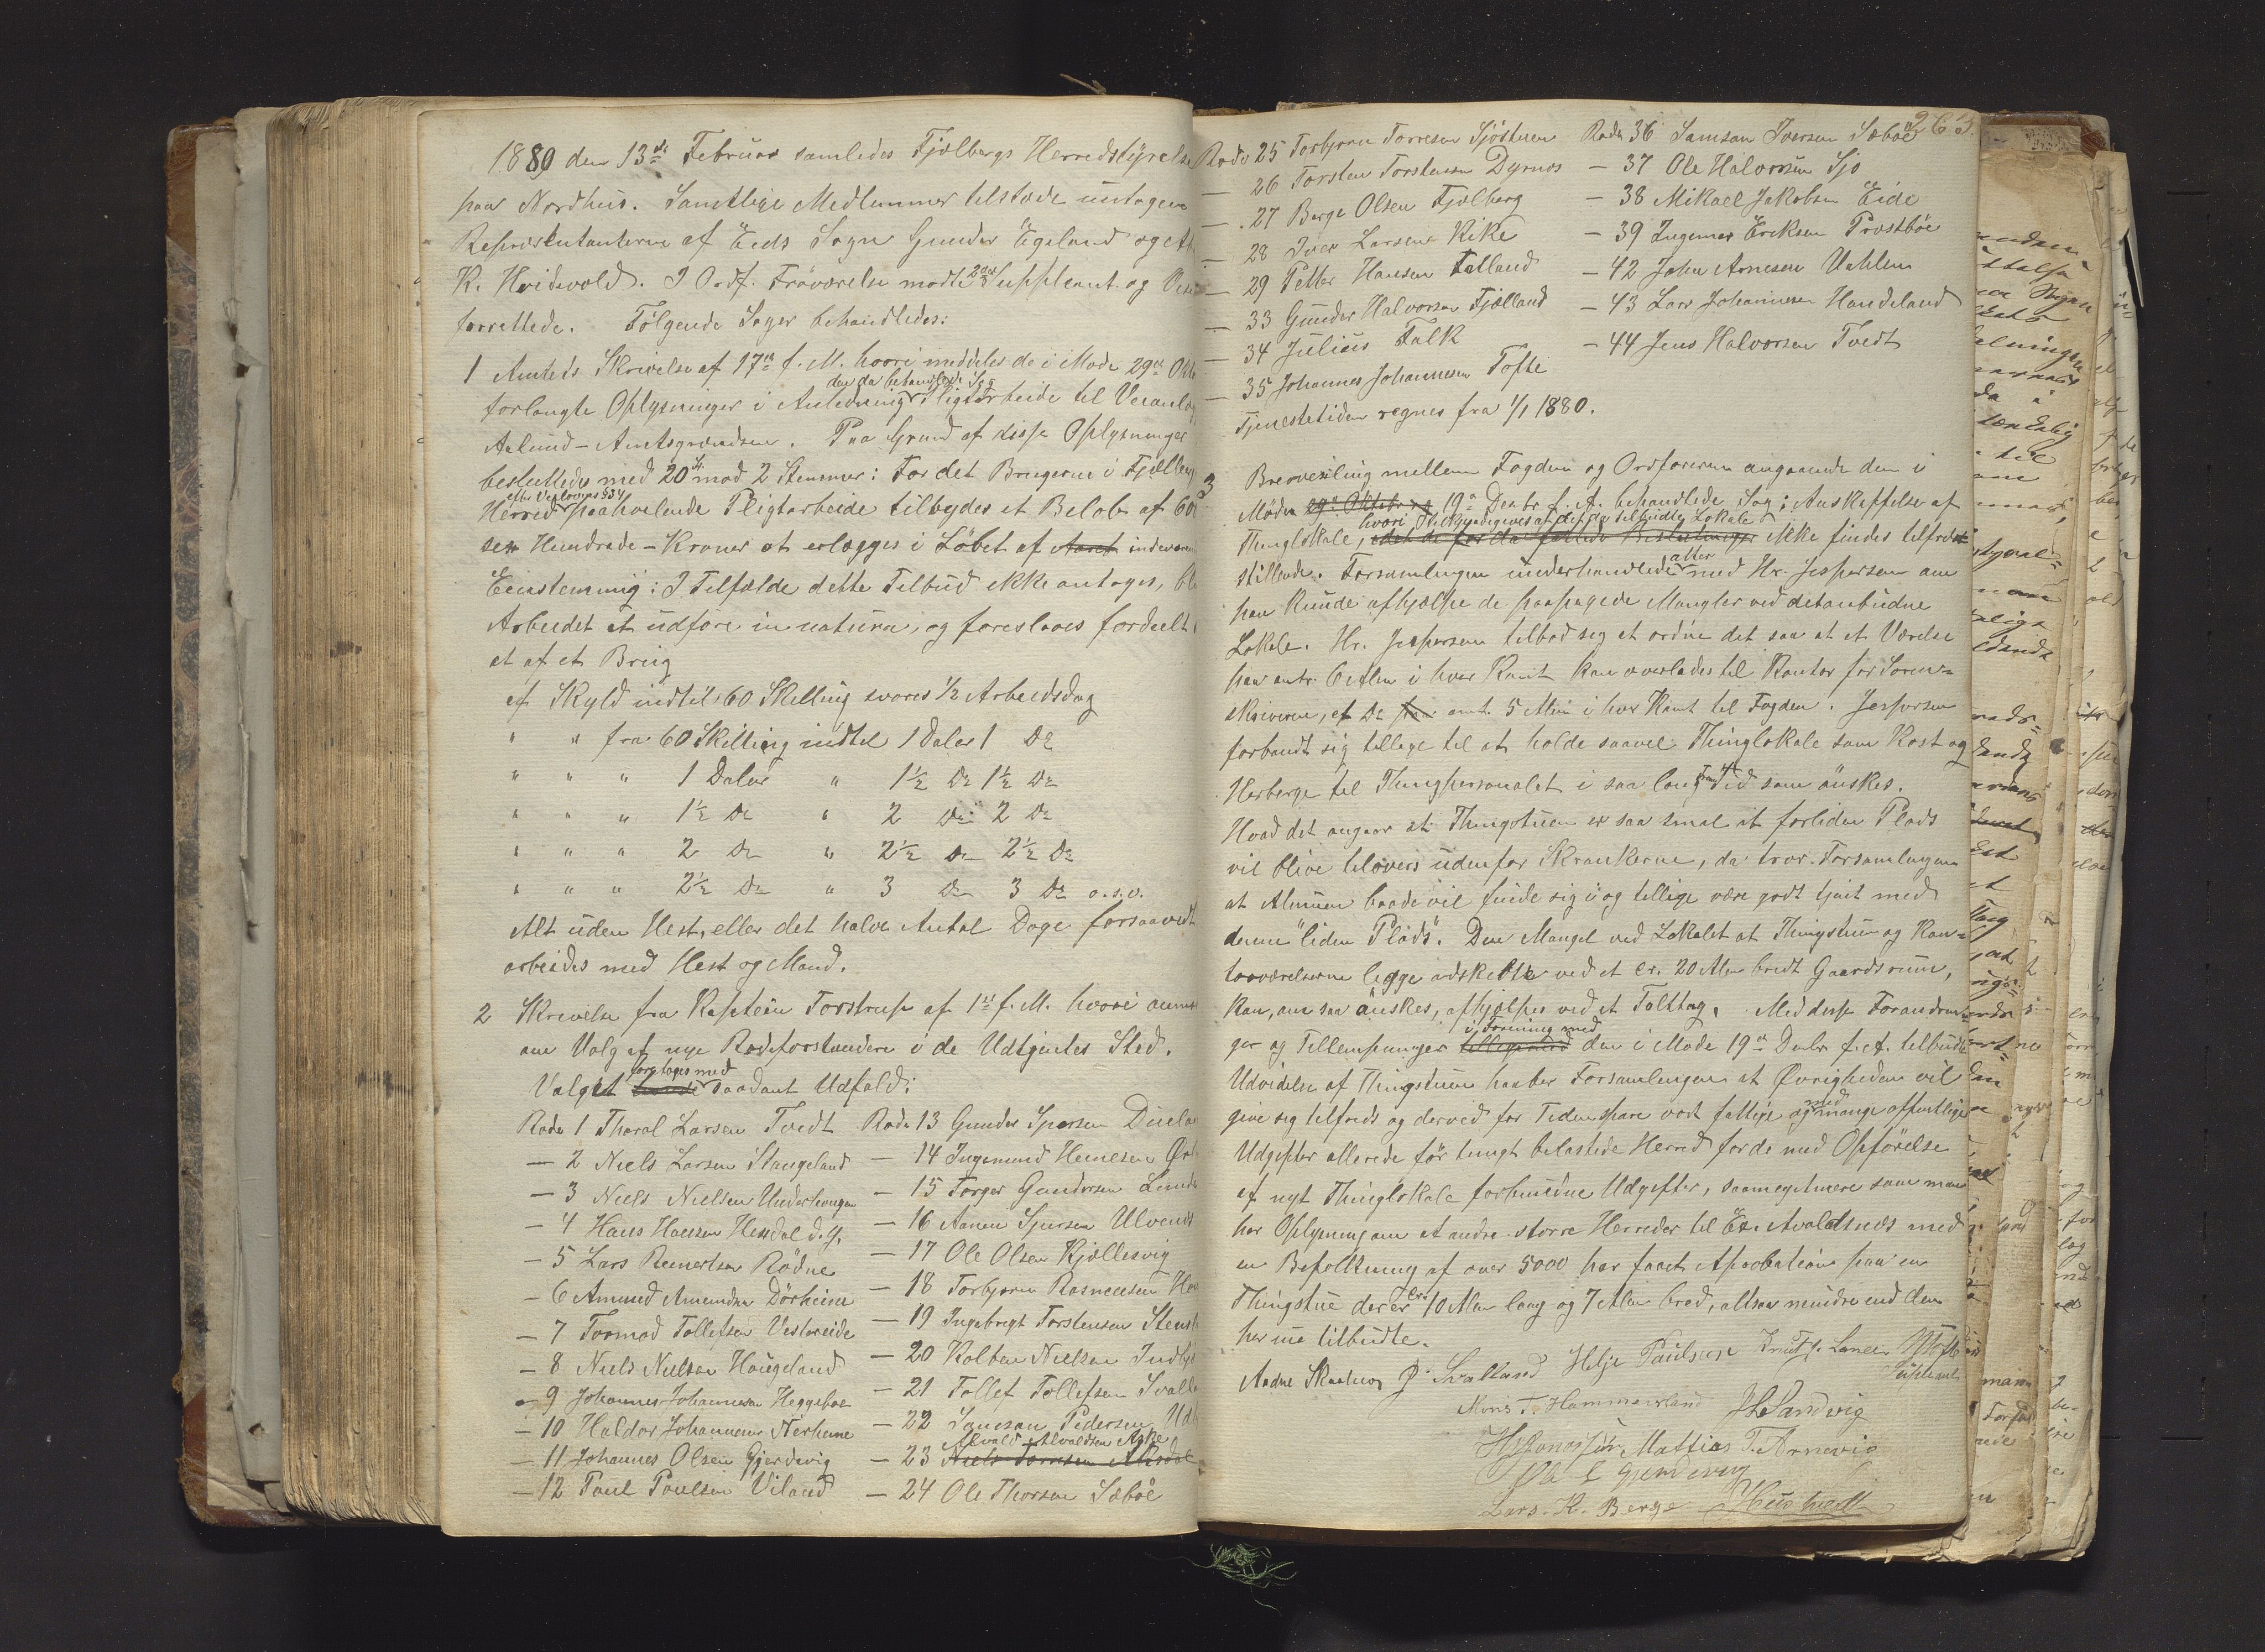 1880 den 13de Februar samledes Fjælbergs Herredstyrelse
paa Nordhus. Samtlige Medlemmer tilstede undtagen
Repræsentanterne af Eids Sogn Gunder Egeland og
K. Hvidevold. I Ordf. Fraværelse mødte 2den Suppleant og
forrettede. Følgende Sager behandledes:
1 Amtets Skrivelse af 17de f. M. hvori meddeles de i Møde 29de Okt
forlangte Oplysninger i Anledning den da behandlede Sag Pligtarbeide til Veianlæg
Aalund-Amtsgrændsen. Paa Grund af disse Oplysninger
besluttedes med 20 St. mod 2 Stemmer: For det Brugerne i Fjælberg
Herred efter Veilovens §34 paahvilende Pligtarbeide tilbydes et Beløb af 600
sex Hundrede-Kroner at erlægges i Løbet af Aaret indeværende
Eenstemmig: I Tilfælde dette Tilbud ikke antages, bliver
Arbeidet at udføre in natura, og foreslaaes fordeelt
at af et Brug
af Skyld indtil 60 Skilling svares 1/2 Arbeidsdag
" " fra 60 Skilling indtil 1 Daler 1 Do
" " " 1 Daler " 1½ Do 1½ Do
" " " 1½ Do " 2 Do 2 Do
" " " 2 Do " 2½ Do 2½ Do
" " " 2½ Do " 3 Do 3 Do o.s.v.
Alt uden Hest, eller det halve Antal Dage forsaavidt
arbeides med Hest og Mand.
2 Skrivelse fra Kaptein Torstrup af 1ste f. M. hvori
om Valg af nye Rodeforstandere i de Udtjentes Sted.
Valget foretoges med saadant Udfald:
Rode 1 Tharal Larsen Tvedt
— 2 Niels Larsen Stangeland
— 3 Niels Nielsen Underhaugen
— 4 Hans Hansen Hesdal d. y.
— 5 Lars Reinertsen Rødne
— 6 Amund Amundsen Dørheim
— 7 Tormod Tollefsen Vestereide
— 8 Niels Nielsen Haugeland
— 9 Johannes Johannesen Heggebøe
— 10 Haldor Johannesen Nerheim
— 11 Johannes Olsen Gjerdevig
— 12 Paul Paulsen Viland
Rode 13 Gunder Sjursen
— 14 Ingemund
— 15 Torger Gundersen
— 16 Aamun Sjursen Ulvenes
— 17 Ole Olsen Kjællesvig
— 18 Torbjørn Rasmussen
— 19 Ingebrigt Torstensen
— 20 Kolben Nielsen
— 21 Tollef Tollefsen
— 22 Samson Pedersen
— 23 Niels Tormsen Alvald Alvaldsen
— 24 Ole Thorsen Sæbøe
263.
Rode 25 Torbjørn Torresen Sjöstuen
— 26 Torsten Torstensen Dyrnes
— 27 Berge Olsen Fjælberg
— 28 Iver Larsen Kike
— 29 Petter Hansen Tatland
— 33 Gunder Halvorsen Fjælland
— 34 Julius Falk
— 35 Johannes Johannesen Tofte
Rode 36 Samson Iversen Sæbøe
— 37 Ole Halvorsen Sjo
— 38 Mikael Jakobsen Eide
— 39 Ingemar Eriksen Prostbøe
— 42 John Arnesen Vahlen
— 43 Lars Johannesen Handeland
— 44 Jens Halvorsen Tvedt
Tjenestetiden regnes fra 1/1 1880.
3 Brevvexling mellem Fogden og Ordføreren angaaende den i
Møde 29de Oktober og 19de Decbr f. A. behandlede Sag: Anskaffelse af
Thinglokale, hvori tilkjendegives at det da tilbudte Lokale ikke findes tilfreds
stillende. Forsamlingen underhandlede atter med Hr. Jespersen om
han kunde afhjælpe de paapegede Mangler ved det anbudne
Lokale. Hr. Jespersen tilbød seg at ordne det saa at et Værelse
paa omtr. 6 Alen i hver Kant kan overlades til Kontor for Soren-
skriveren, et Do omt. 5 Alen i hver Kant til Fogden. Jespersen
forbandt sig tillige til at holde saavel Thinglokale som Kost og
Herberge til Thingpersonalet i saa lang Tid som ønskes.
Hvad det angaar at Thingstuen er saa smal at forliden Plads
vil blive tilovers udenfor Skrankerne, da tror Forsamlingen
at Almuen baade vil finde sig i og tillige være godt tjent med
denne "liden Plads". Den Mangel ved Lokalet at Thingstue og Kon-
torværelserne ligge adskilte ved et cr. 20 Alen bredt Gaardsrum,
kan, om saa ønskes, afhjælpes ved et Tolttag. Med disse Forandrin-
ger og Tillempninger i Forening med den i Møde 19de Decbr. f. A. tilbudte
Udvidelse af Thingstuen haaber Forsamlingen at Øvrigheden vil
give sig tilfreds og derved for Tiden spare vort fattige og med mange offentlige
Udgifter allerede før tungt belastede Herred for de med Opførelse
af nyt Thinglokale forbundne Udgifter, saameget mere som man
har Oplysning om at andre større Herreder til Ex. Avaldsnes med
en Befolkning af over 5000 har faaet Aprobation paa en
Thingstue der er cr 10 Alen lang og 7 Alen bred, altsaa mindre end den
her nu tilbudte.
Aadne Skaalnes Svalland Helje Paulsen Knut J. Lunde
Suppleant
Mons T. Hammersland H Sandvig
Mattias T. Arnevig
Ole E Gjerdevig
Lars. K. Berge